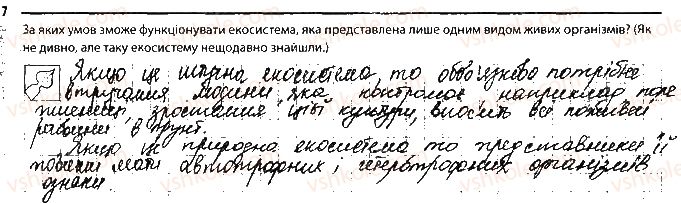 7
За яких умов зможе функціонувати екосистема, яка представлена лише одним видом живих організмів? (Як
не дивно, але таку екосистему нещодавно знайшли.)
Якщо це штучна екосистема, то обов'язково потрібне
втручання людини яка контролює наприклад поле
пшениці, зростання цієї культури, вносить всі поживні
речовини в ґрунт.
Якщо це природна екосистема то представники її
повинні мати автотрофних, і гетеротрофних організмів
ознаки